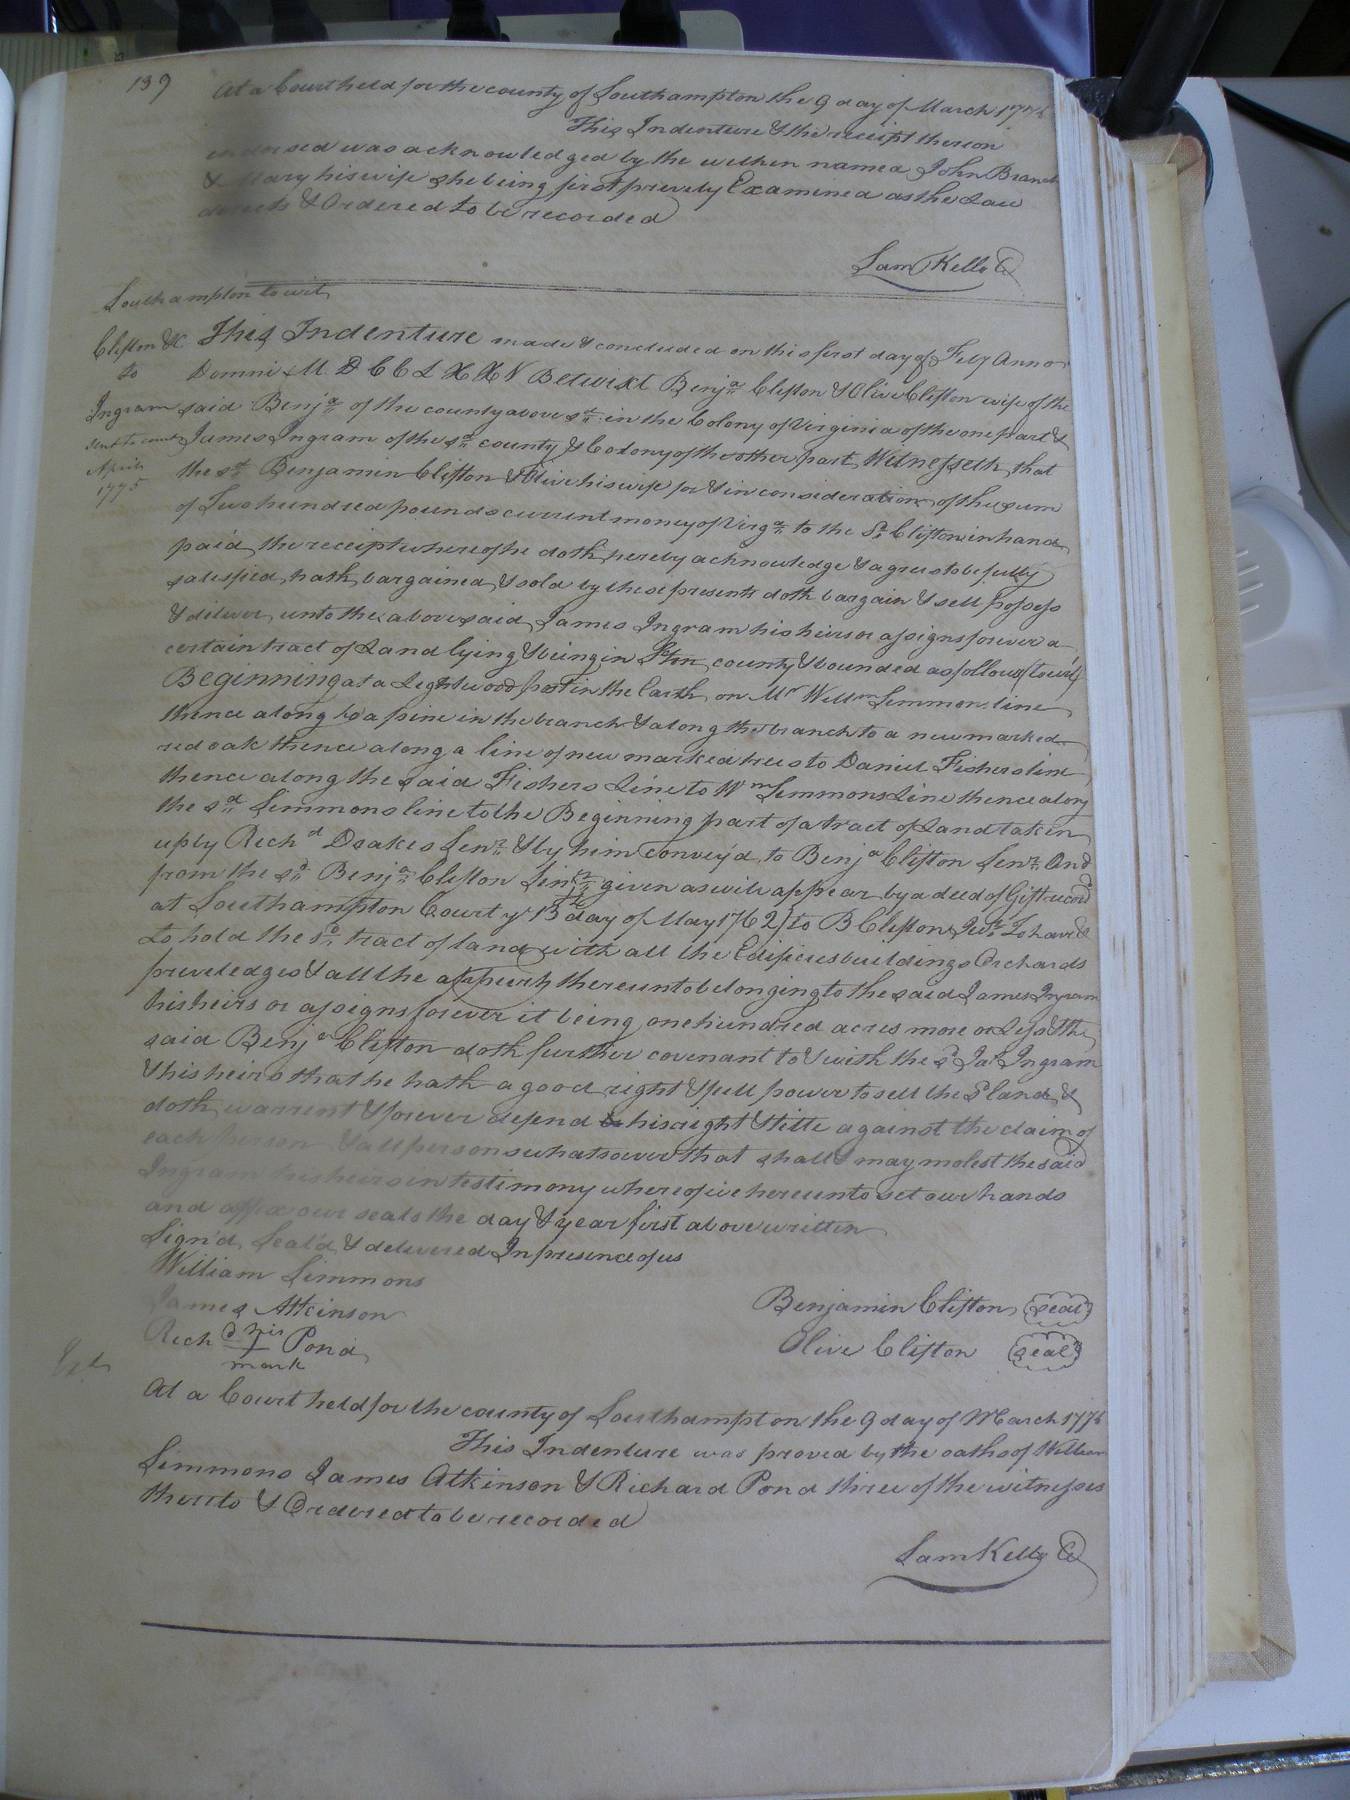 139
At a Court held for the county of Southampton the 9 day of March 177
This Indenture & the receipt thereon
endorsed was acknowledged by the within named John Branch
& Mary his wife she being first privily Examined as the Law
directs & Ordered to be recorded
Sam Kello C
Southampton to wit
Clifton &c
to
Ingram
April
1775
This Indenture made & concluded on this first day of Feby Anno
Domni M D C C L X X V Betwixt Benja Clifton & Olive Clifton wife of the
said Benja of the county above sd in the Colony of Virginia of the one part &
James Ingram of the sd county & Colony of the other part Witnesseth that
the sd Benjamin Clifton & Olive his wife for & in consideration of the sum
of Two hundred pounds current money of Virga to the Sd Clifton in hand
paid the receipt whereof he doth hereby acknowledge & agree to be fully
satesfied hath bargained & sold by these presents doth bargain & sell possess
& deliver unto the above said James Ingram his heirs or assigns forever a
certain tract of Land lying & being in county & bounded as follows (to wit)
Beginning at a Lightwood post in the Earth on Mr Willm Simmons line
thence along to a pine in the branch & along the branch to a new marked
red oak thence along a line of new marked trees to Daniel Fishers line
thence along the said Fishers Line to Wm Simmons Line thence along
the sd Simmons line to the Beginning part of a tract of Land taken
up by Richd Drakes Senr & by him convey'd to Benja Clifton Senr And
from the sd Benja Clifton Senr given as will appear by a deed of Gift record
at Southampton Court ye 13th day of May 1762) to B Clifton Junr To have &
to hold the sd tract of land with all the Edificies buildings Orchards
preveledges & all the appurts thereunto belonging to the said James Ingram
his heirs or assigns forever it being one hundred acres more or Less & the
said Benja Clifton doth further covenant to & with the sd Jas Ingram
& his heirs that he hath a good right & full power to sell the Sd land &
doth warrent & forever defend his right & title against the claim of
each person & all persons whatsoever that shall may molest the said
Ingram his heirs in testimony whereof we hereunto set our hands
and affix our seals the day & year first above written
Sign'd Seal'd & delivered In presence of us
William Simmons
James Atkinson
Richd his Pond
mark
Benjamin Clifton seal
Olive Clifton seal
At a Court held for the county of Southampton the 9 day of March 177
This Indenture was proved by the oaths of William
Simmons James Atkinson & Richard Pond three of the witnesses
thereto & Ordered to be recorded
Sam Kello C